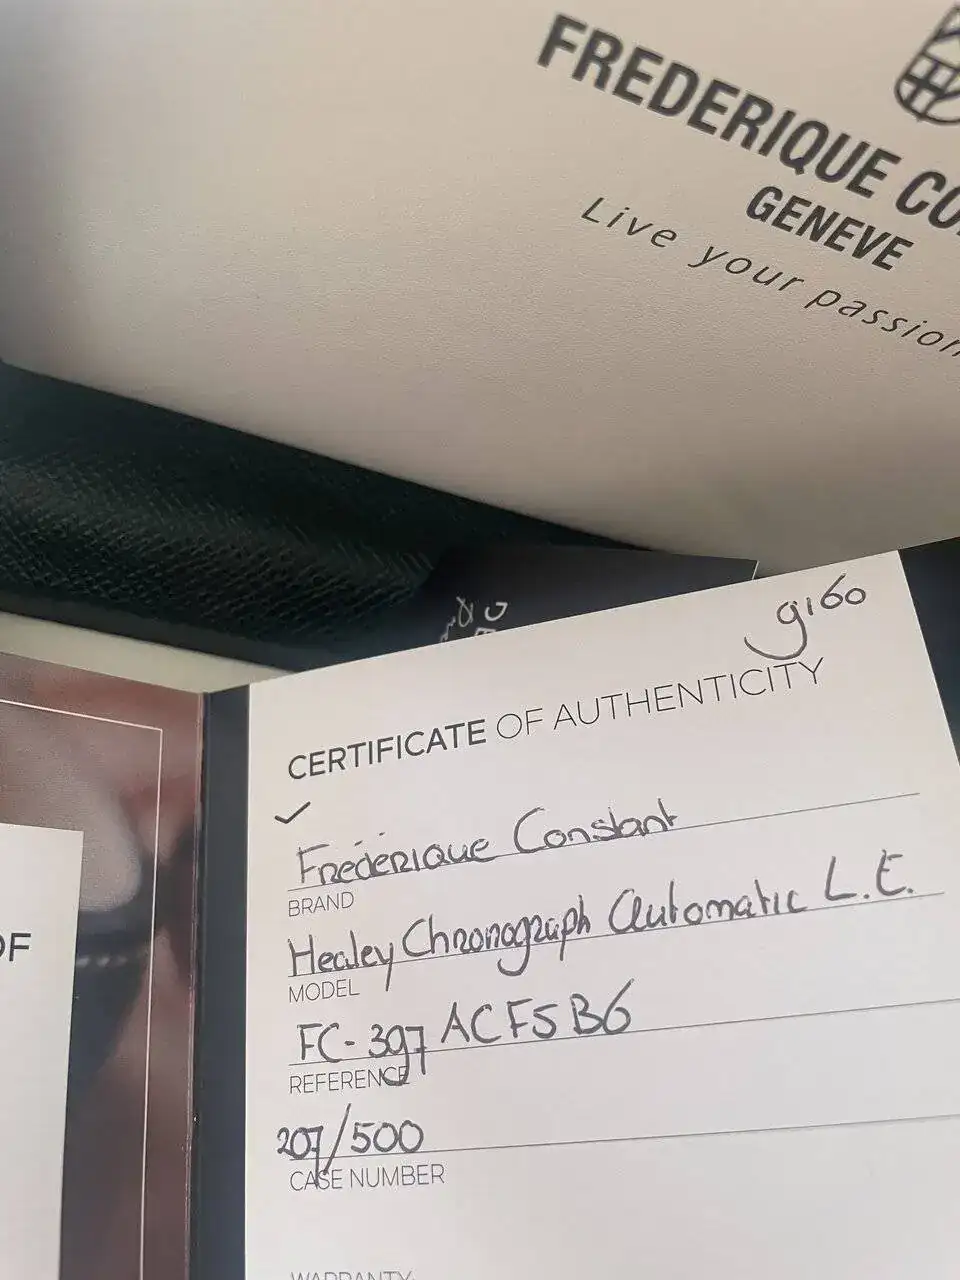 FREDERIQUE CO
GENEVE
Live your passion
g160
CERTIFICATE OF AUTHENTICITY
✓
Fréderique Constant
BRAND
Healey Chronograph Automatic L.E.
MODEL
FC-397ACF5B6
REFERENCE
207/500
CASE NUMBER
WARRANTY
OF